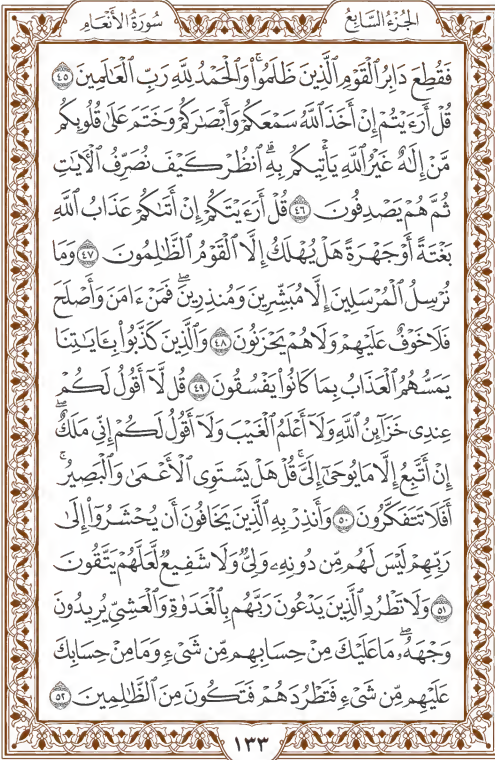 الجُزْءُ السَّابِعُ
سُورَةُ الأَنْعَامِ
فَقُطِعَ دَابِرُ ٱلْقَوْمِ ٱلَّذِينَ ظَلَمُوا۟ۚ وَٱلْحَمْدُ لِلَّهِ رَبِّ ٱلْعَٰلَمِينَ ٤٥
قُلْ أَرَءَيْتُمْ إِنْ أَخَذَ ٱللَّهُ سَمْعَكُمْ وَأَبْصَٰرَكُمْ وَخَتَمَ عَلَىٰ قُلُوبِكُم
مَّنْ إِلَٰهٌ غَيْرُ ٱللَّهِ يَأْتِيكُم بِهِۗ ٱنظُرْ كَيْفَ نُصَرِّفُ ٱلْءَايَٰتِ
ثُمَّ هُمْ يَصْدِفُونَ ٤٦ قُلْ أَرَءَيْتَكُمْ إِنْ أَتَىٰكُمْ عَذَابُ ٱللَّهِ
بَغْتَةً أَوْ جَهْرَةً هَلْ يُهْلَكُ إِلَّا ٱلْقَوْمُ ٱلظَّٰلِمُونَ ٤٧ وَمَا
نُرْسِلُ ٱلْمُرْسَلِينَ إِلَّا مُبَشِّرِينَ وَمُنذِرِينَۖ فَمَنْ ءَامَنَ وَأَصْلَحَ
فَلَا خَوْفٌ عَلَيْهِمْ وَلَا هُمْ يَحْزَنُونَ ٤٨ وَٱلَّذِينَ كَذَّبُوا۟ بِـَٔايَٰتِنَا
يَمَسُّهُمُ ٱلْعَذَابُ بِمَا كَانُوا۟ يَفْسُقُونَ ٤٩ قُل لَّآ أَقُولُ لَكُمْ
عِندِى خَزَآئِنُ ٱللَّهِ وَلَآ أَعْلَمُ ٱلْغَيْبَ وَلَآ أَقُولُ لَكُمْ إِنِّى مَلَكٌۖ
إِنْ أَتَّبِعُ إِلَّا مَا يُوحَىٰٓ إِلَىَّۚ قُلْ هَلْ يَسْتَوِى ٱلْأَعْمَىٰ وَٱلْبَصِيرُۚ
أَفَلَا تَتَفَكَّرُونَ ٥٠ وَأَنذِرْ بِهِ ٱلَّذِينَ يَخَافُونَ أَن يُحْشَرُوٓا۟ إِلَىٰ
رَبِّهِمْ لَيْسَ لَهُم مِّن دُونِهِۦ وَلِىٌّ وَلَا شَفِيعٌ لَّعَلَّهُمْ يَتَّقُونَ
٥١ وَلَا تَطْرُدِ ٱلَّذِينَ يَدْعُونَ رَبَّهُم بِٱلْغَدَوٰةِ وَٱلْعَشِىِّ يُرِيدُونَ
وَجْهَهُۥۖ مَا عَلَيْكَ مِنْ حِسَابِهِم مِّن شَىْءٍ وَمَا مِنْ حِسَابِكَ
عَلَيْهِم مِّن شَىْءٍ فَتَطْرُدَهُمْ فَتَكُونَ مِنَ ٱلظَّٰلِمِينَ ٥٢
١٣٣